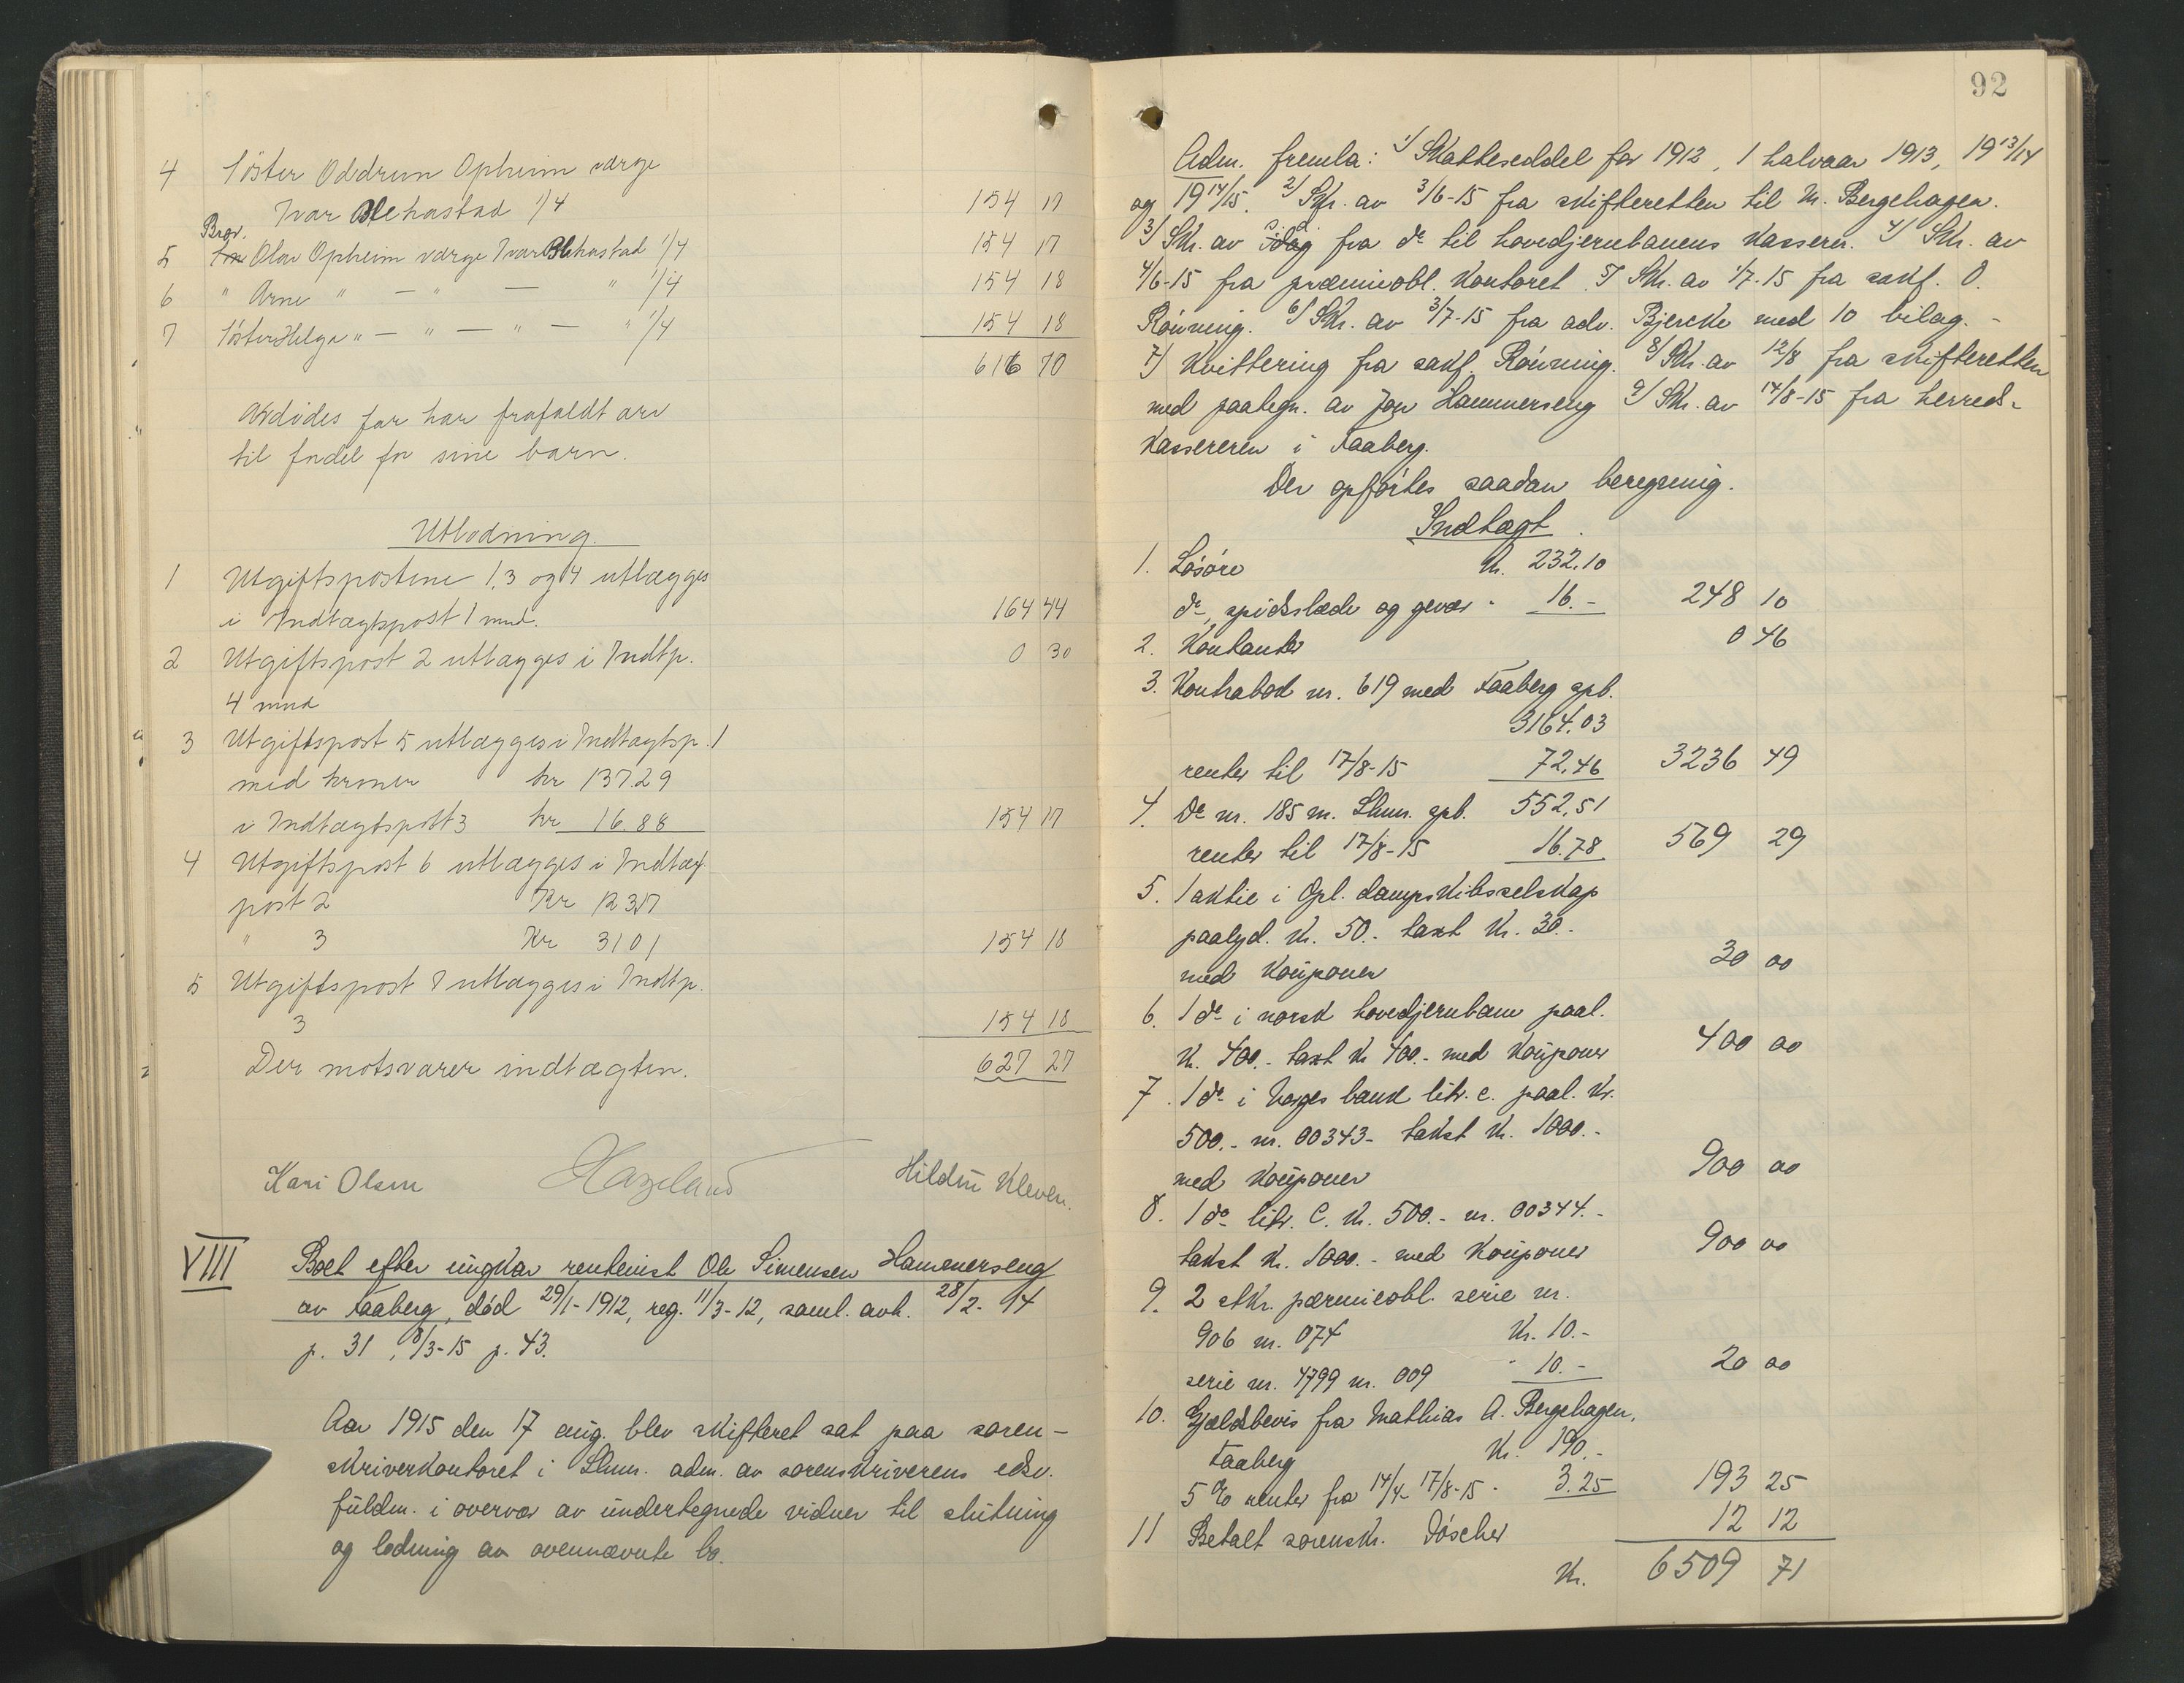 4 Söster Oddrun Opheim værge
Ivar Blehastad 1/4 154 17
Bror.
5 Olav Opheim værge Ivar Blehastad 1/4 154 17
6 " Arne " — " — " 1/4 154 18
7 Söster Helga " — " — " — " 1/4 154 18
616 70
Avdödes far har frafaldt arv
til fordel for sine barn.
Utlodning.
1 Utgiftspostene 1, 3 og 4 utlægges
i Indtægtspost 1 med. 164 44
2 Utgiftspost 2 utlægges i Indtp. 0 30
4 med
3 Utgiftspost 5 utlægges i Indtægtsp. 1
med kroner kr 137.29
i Indtægtspost 3 kr 16.88 154 17
4 Utgiftspost 6 utlægges i Indtæg
post 2 Kr 123.17
" 3 Kr 31 01 154 18
5 Utgiftspost 7 utlægges i Indtp.
3 154 18
Der motsvarer indtægten. 627 27
Kari Olsen Hazeland Hildur Kleven.
VIII Boet efter ungkar rentenist Ole Simensen Hammerseng
av Faaberg, död 29/1-1912, reg. 11/3-12, saml. avh. 28/2-14
p. 31, 8/3-15 p. 43.
Aar 1915 den 17 aug. blev skifteret sat paa soren-
skriverkontoret i Lhmr. adm. av sorenskriverens edsv.
fuldm. i overvær av undertegnede vidner til slutning
og lodning av ovennævnte bo.
92
Adm. fremla: 1/ Skatteseddel for 1912, 1 halvaar 1913, 19 13/14
og 19 14/15. 2/ Skr. av 3/6-15 fra skifteretten til M. Bergehagen.
3/ Skr. av s. d. fra do til hovedjernbanens kasserer. 4/ Skr. av
4/6-15 fra præmieobl. kontoret. 5/ Skr. av 1/7-15 fra sakf. O.
Rönning. 6/ Skr. av 3/7-15 fra adv. Bjercke med 10 bilag. -
7/ Kvittering fra sakf. Rönning. 8/ Skr. av 12/8 fra skifteretten
med paategn. av Jon Hammerseng 9/ Skr. av 14/8-15 fra herreds-
kassereren i Faaberg.
Der opförtes saadan beregning.
Indtægt.
1. Lösöre Kr. 232.10
do, spidsslæde og gevær " 16.- 248 10
2. Kontanter 0 46
3. Kontrabok nr. 619 med Faaberg spb.
3164.03
renter til 17/8-15 72.46 3236 49
4. Do nr. 185 m. Lhmr. spb. 552.51
renter til 17/8-15 16.78 569 29
5. 1 aktie i Opl. dampskibsselskap
paalyd. Kr. 50.- takst Kr. 30.-
med kouponer 30 00
6. 1 do i norsk hovedjernbane paal.
Kr. 400.- takst Kr 400.- med kouponer 400 00
7. 1 do i Norges bank litr. c. paal. Kr.
500.- nr. 00343- takst Kr. 1000.-
med kouponer 900 00
8. 1 do litr. C. Kr. 500.- nr. 00344.-
takst Kr. 1000.- med kouponer 900 00
9. 2 stkr. pærmieobl. serie nr.
906 nr. 074 Kr. 10.-
serie nr. 4799 nr. 009 " 10.- 20 00
10. Gjældsbevis fra Mathias A. Bergehagen,
Faaberg Kr. 190.-
5 % renter fra 14/4-17/8-15 " 3.25 193 25
11 Betalt sorenskr. Döscher 12 12
Kr. 6509 71